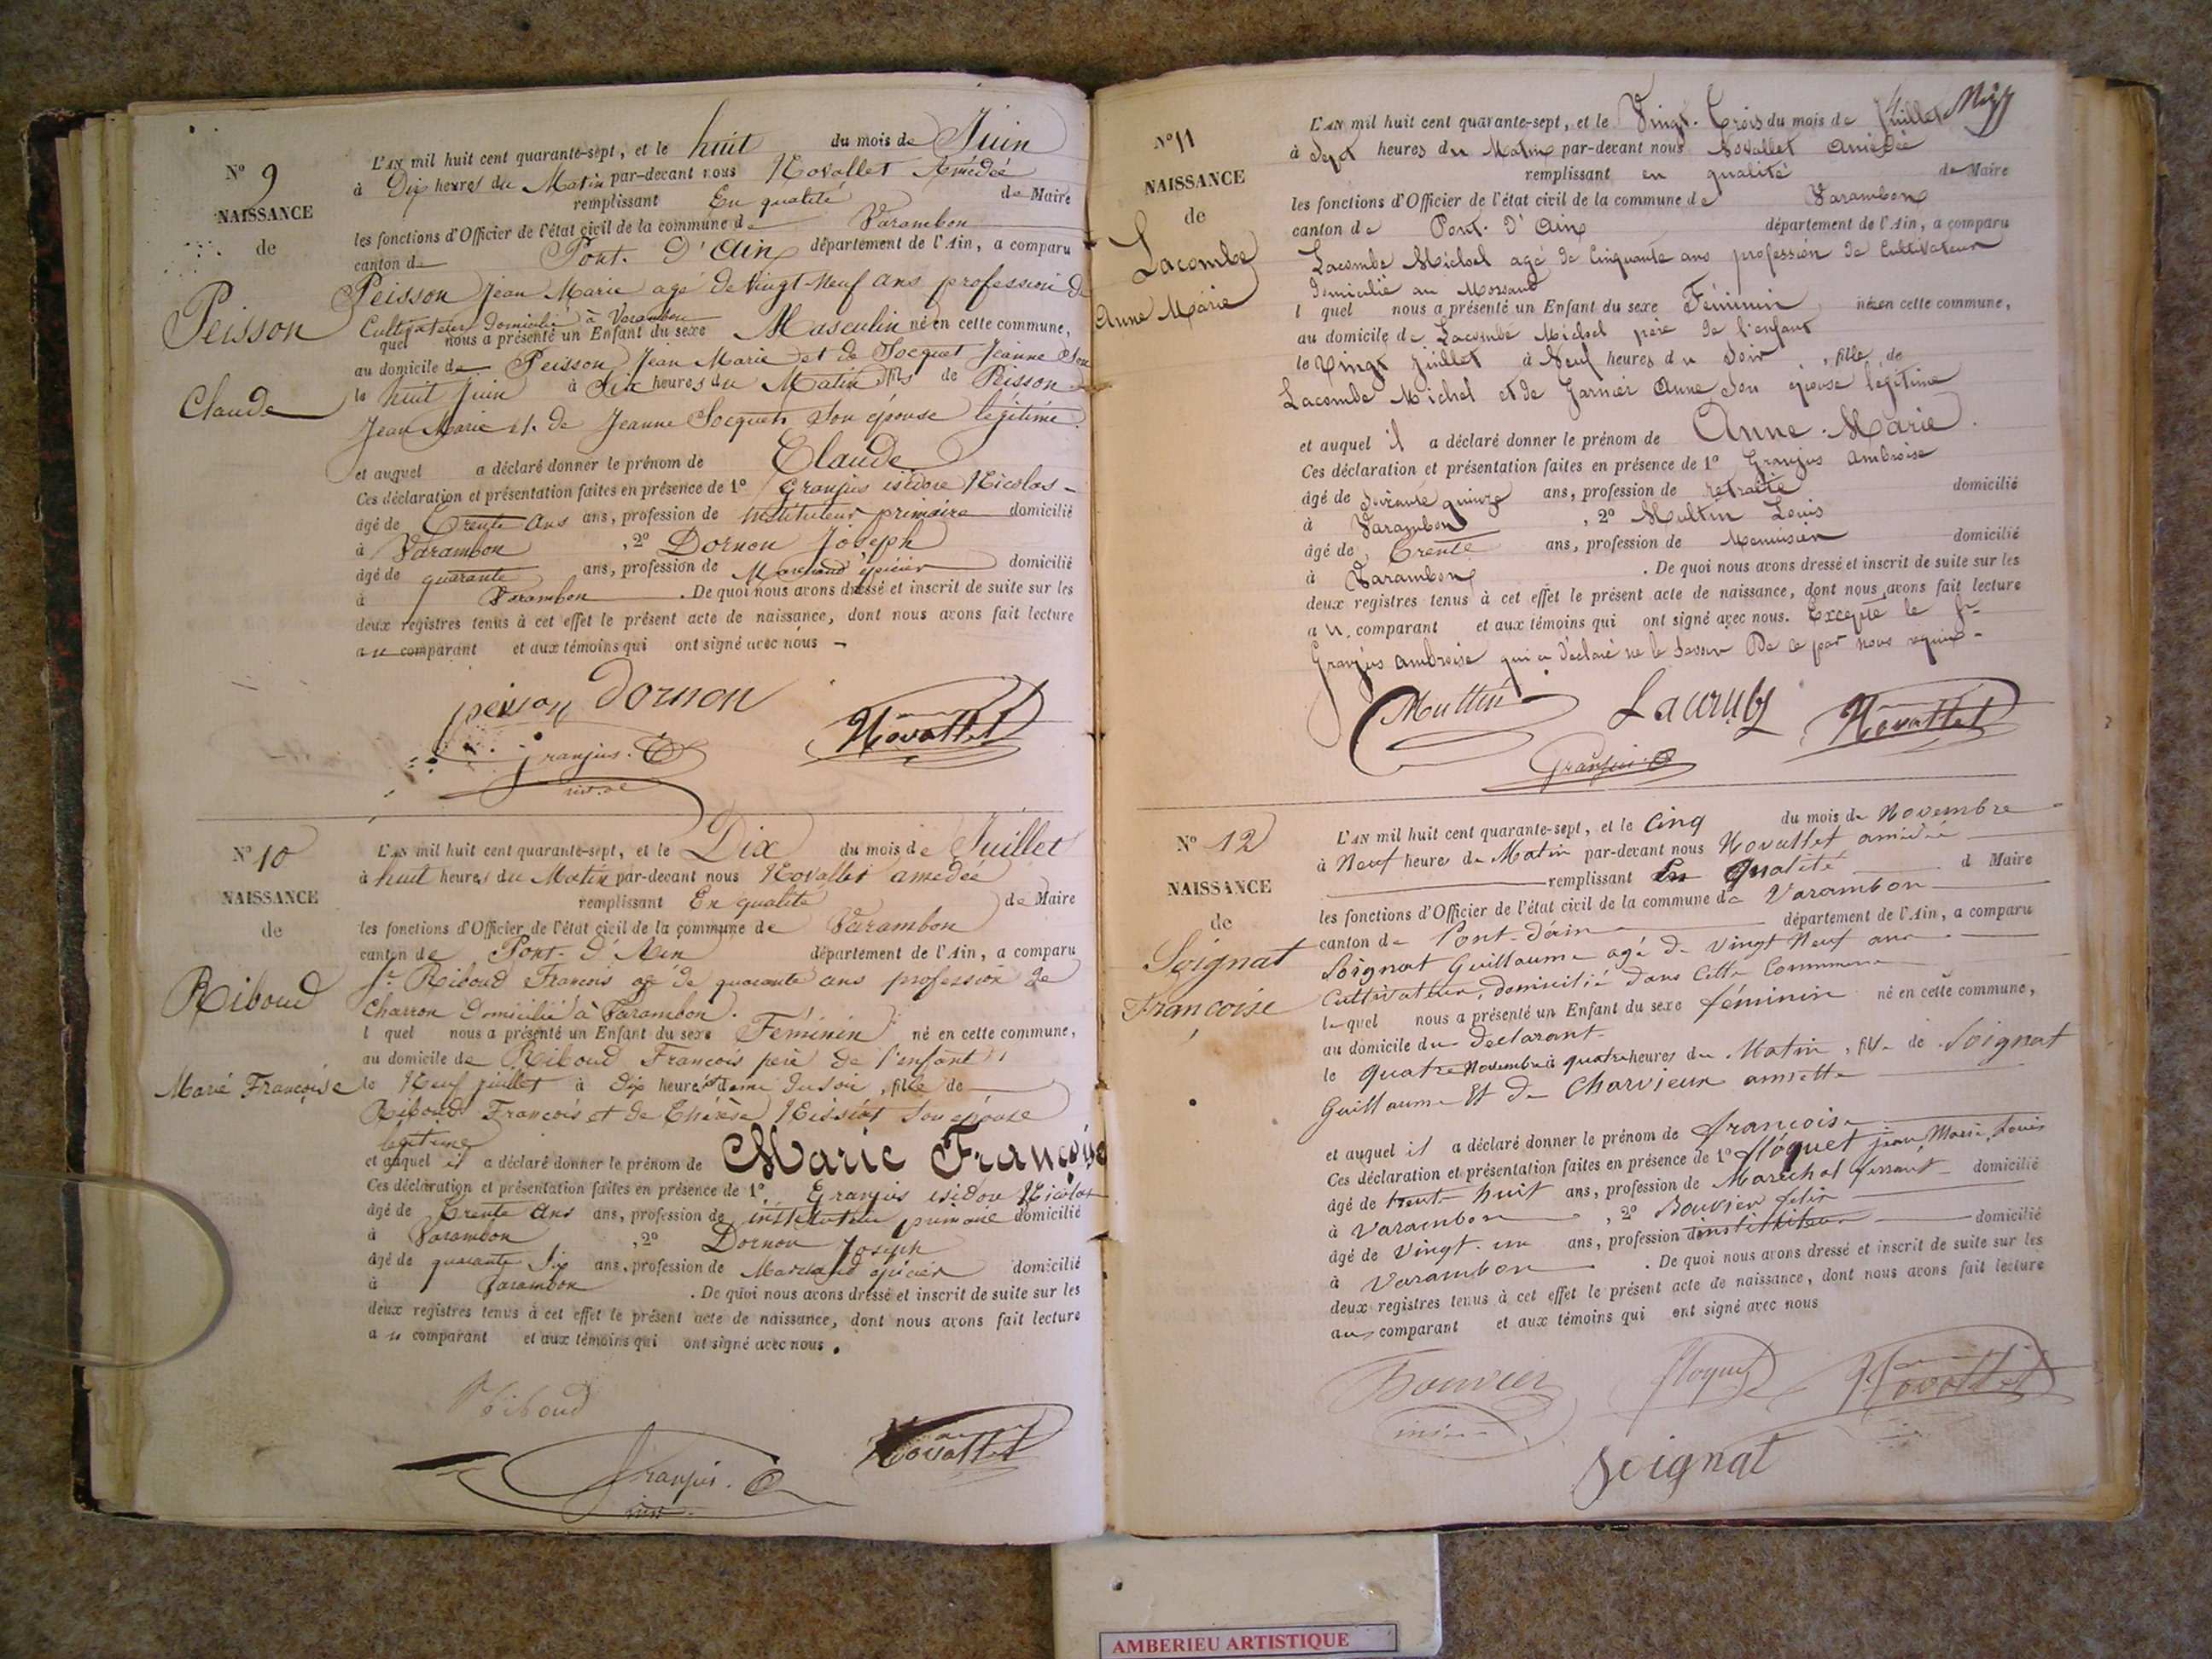 N° 9
NAISSANCE
de
Peisson
Claude
L'AN mil huit cent quarante-sept, et le huit du mois de Juin
à Dix heures du Matin par-devant nous Novallet Amédée
remplissant En qualité de Maire
les fonctions d'Officier de l'état civil de la commune de Varambon
canton de Pont. D'Ain département de l'Ain, a comparu
Peisson Jean Marie agé de Vingt-Neuf ans profession de
Cultivateur domicilié à Varambon
quel nous a présenté un Enfant du sexe Masculin né en cette commune,
au domicile de Peisson Jean Marie et de Socquet Jeanne Son
le huit Juin à dix heures du Matin fils de Peisson
Jean Marie et de Jeanne Socquet Son épouse légitime
et auquel a déclaré donner le prénom de Claude
Ces déclaration et présentation faites en présence de 1° Granjus isidore Nicolas
âgé de Trente ans ans, profession de instituteur primaire domicilié
à Varambon, 2° Dornon Joseph
âgé de quarante ans, profession de Marchand épicier domicilié
à Varambon. De quoi nous avons dressé et inscrit de suite sur les
deux registres tenus à cet effet le présent acte de naissance, dont nous avons fait lecture
au comparant et aux témoins qui ont signé avec nous
peisson Dornon
Granjus Novallet
N° 10
NAISSANCE
de
Riboud
Marie Françoise
L'AN mil huit cent quarante-sept, et le Dix du mois de Juillet
à huit heures du Matin par-devant nous Novallet amédée
remplissant En qualité de Maire
les fonctions d'Officier de l'état civil de la commune de Varambon
canton de Pont-d'Ain département de l'Ain, a comparu
Sr Riboud Francois agé de quarante ans profession de
Charron Domicilié à Varambon.
l quel nous a présenté un Enfant du sexe Féminin né en cette commune,
au domicile de Riboud Francois père de l'enfant
le Neuf juillet à dix heures et demie du soir, fille de
Riboud Francois et de Thérèse Son épouse
légitime
et auquel il a déclaré donner le prénom de Marie Françoise
Ces déclaration et présentation faites en présence de 1° Granjus isidore Nicolas
âgé de Trente ans ans, profession de instituteur primaire domicilié
à Varambon, 2° Dornon Joseph
âgé de quarante Six ans, profession de Marchand épicier domicilié
à Varambon. De quoi nous avons dressé et inscrit de suite sur les
deux registres tenus à cet effet le présent acte de naissance, dont nous avons fait lecture
au comparant et aux témoins qui ont signé avec nous.
Riboud
Granjus Novallet
N° 11
NAISSANCE
de
Lacombe
Anne Marie
L'AN mil huit cent quarante-sept, et le Vingt-Trois du mois de Juillet
à Sept heures du Matin par-devant nous Novallet Amédée
remplissant en qualité de Maire
les fonctions d'Officier de l'état civil de la commune de Varambon
canton de Pont. d'Ain département de l'Ain, a comparu
Lacombe Michel agé de Cinquante ans profession de Cultivateur
domicilié au
l quel nous a présenté un Enfant du sexe Féminin né en cette commune,
au domicile de Lacombe Michel père de l'enfant
le Vingt juillet à Neuf heures du Soir, fille de
Lacombe Michel et de Garnier Anne Son épouse légitime
et auquel il a déclaré donner le prénom de Anne-Marie.
Ces déclaration et présentation faites en présence de 1° Granjus Ambroise
âgé de Soixante quinze ans, profession de retraité domicilié
à Varambon, 2° Multin Louis
âgé de Trente ans, profession de Menuisier domicilié
à Varambon. De quoi nous avons dressé et inscrit de suite sur les
deux registres tenus à cet effet le présent acte de naissance, dont nous avons fait lecture
au comparant et aux témoins qui ont signé avec nous. Excepté le Sr
Granjus ambroise qui a déclaré ne le Savoir De ce par nous requis
Multin Lacombe Novallet
Granjus
N° 12
NAISSANCE
de
Soignat
Françoise
L'AN mil huit cent quarante-sept, et le Cinq du mois de Novembre
à Neuf heures du Matin par-devant nous Novallet amédée
remplissant En qualité d Maire
les fonctions d'Officier de l'état civil de la commune de Varambon
canton de Pont-d'ain département de l'Ain, a comparu
Soignat Guillaume agé de vingt Neuf ans
Cultivateur, domicilié dans Cette Commune
lequel nous a présenté un Enfant du sexe féminin né en cette commune,
au domicile du declarant
le quatre Novembre à quatre heures du Matin, fille de Soignat
Guillaume Et de Charvieux
et auquel il a déclaré donner le prénom de francoise
Ces déclaration et présentation faites en présence de 1° floquet jean Marie Louis
âgé de trente huit ans, profession de Maréchal ferrant domicilié
à Varambon, 2° Bouvier felix
âgé de Vingt-un ans, profession d instituteur domicilié
à Varambon. De quoi nous avons dressé et inscrit de suite sur les
deux registres tenus à cet effet le présent acte de naissance, dont nous avons fait lecture
au comparant et aux témoins qui ont signé avec nous
Bouvier floquet Novallet
Soignat
AMBERIEU ARTISTIQUE